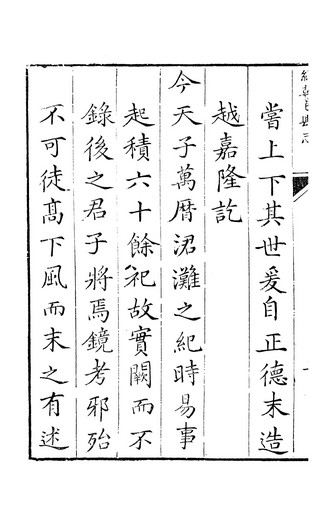 嘗上下其世爰自正德末造
越嘉隆訖
今天子萬曆涒灘之紀時易事
起積六十餘祀故實闕而不
錄後之君子將焉鏡考邪殆
不可徒髙下風而末之有述